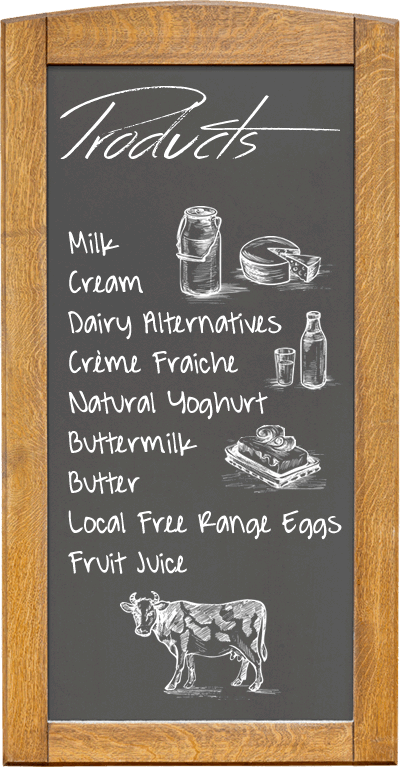 Products
Milk
Cream
Dairy Alternatives
Crème Fraiche
Natural Yoghurt
Buttermilk
Butter
Local Free Range Eggs
Fruit Juice